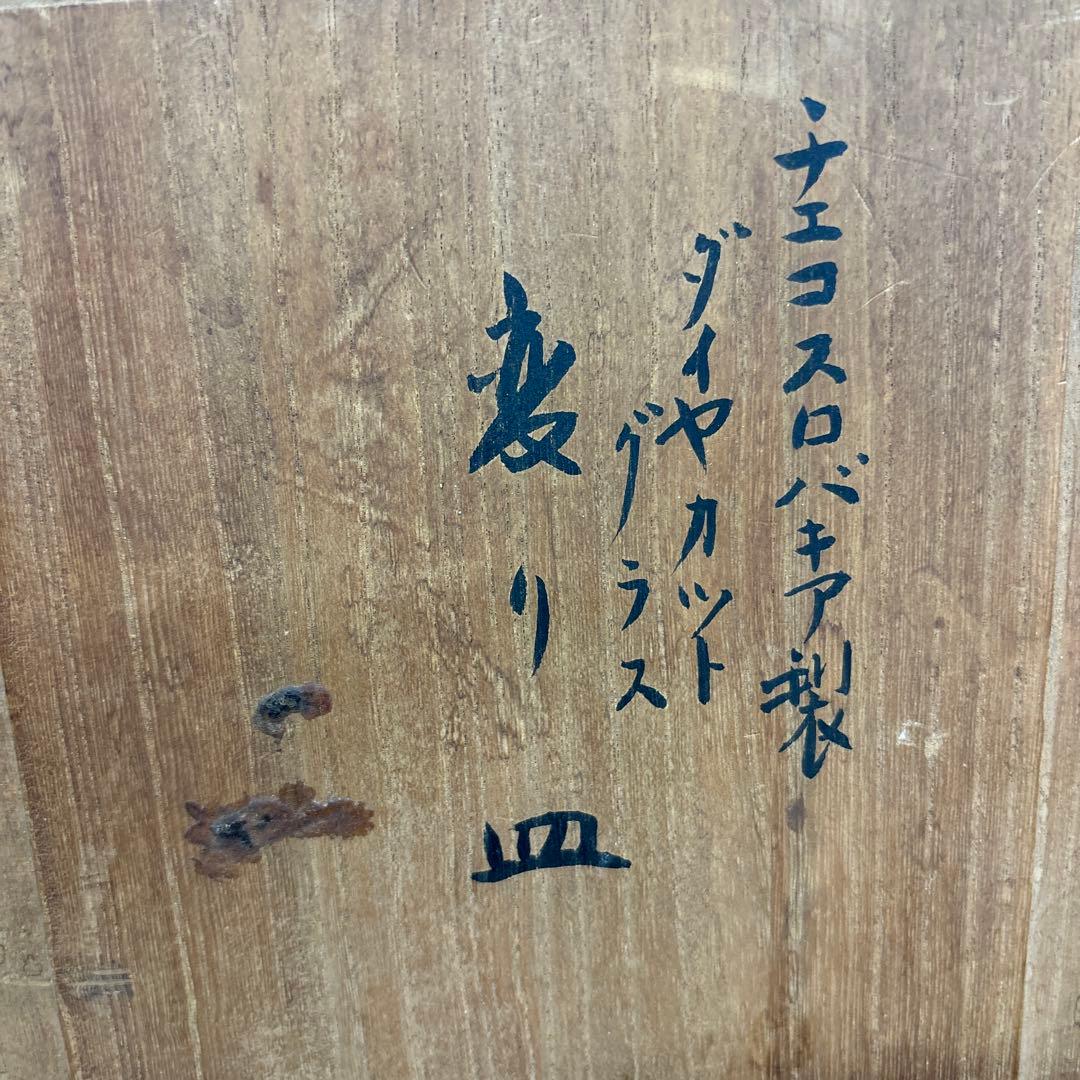 チエコスロバキア製
ダイヤカット
グラス
変り皿